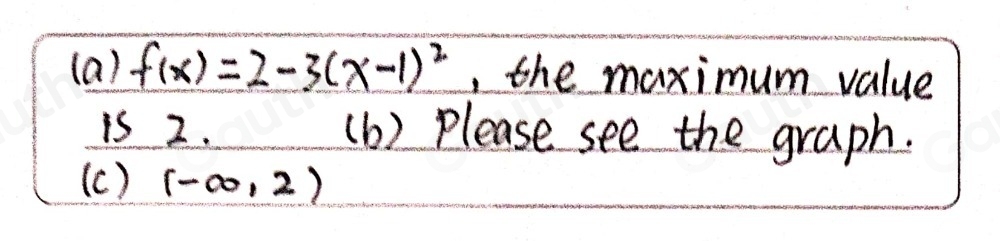 (a) f(x) = 2 - 3(x-1)², the maximum value
is 2. (b) Please see the graph.
(c) (-∞, 2)